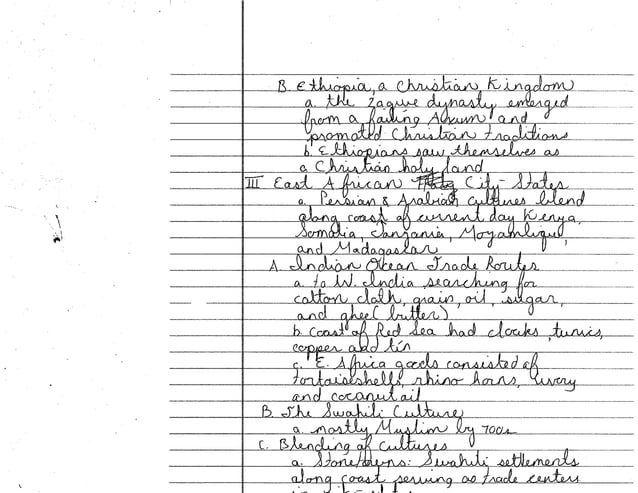 B. Ethiopia, a Christian Kingdom
a. the Zagwe dynasty emerged
from a failing Axum and
promoted Christian traditions
b. Ethiopians saw themselves as
a Christian holy land
III East African City-States
a. Persian & Arabian cultures blend
along coast of current day Kenya,
Somalia, Tanzania, Mozambique,
and Madagaslar
A. Indian Ocean Trade Routes
a. to W. India searching for
cotton cloth, grain, oil, sugar,
and ghee (butter)
b. Coast of Red Sea had cloaks, tunics,
copper and tin
c. E. Africa goods consisted of
tortoiseshells, rhino horns, ivory
and coconut oil
B. The Swahili Culture
a. mostly Muslim by 700s
C. Blending of Cultures
a. Stonetowns: Swahili settlements
along coast serving as trade centers